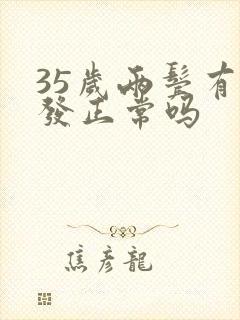 35歲两鬓有
發正常吗
焦彦龍